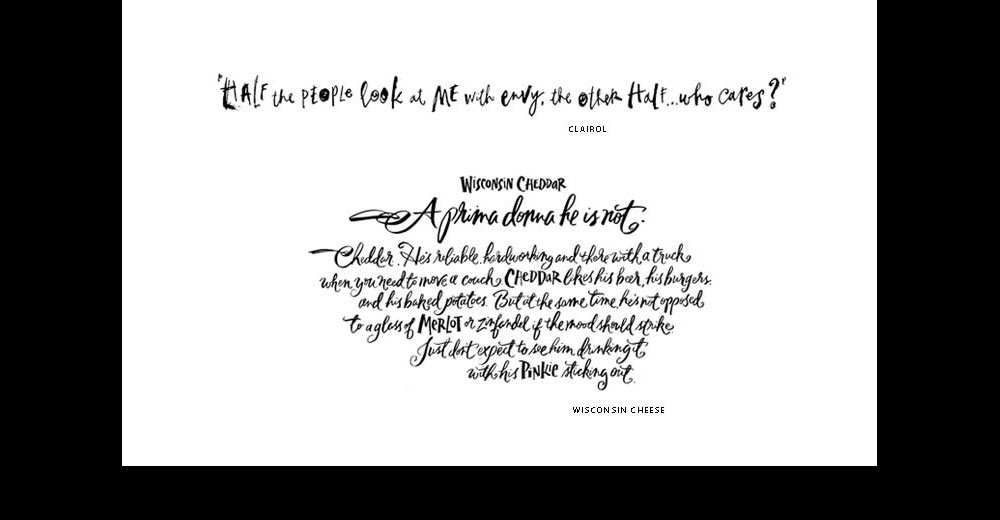 "HALF the PEOPLE look at ME with envy. the other Half...who cares?"
CLAIROL
WISCONSIN CHEDDAR
A prima donna he is not.
Cheddar. He's reliable, hardworking and there with a truck
when you need to move a couch. CHEDDAR likes his beer, his burgers,
and his baked potatoes. But at the same time, he's not opposed
to a glass of MERLOT or Zinfandel if the mood should strike.
Just don't expect to see him drinking it
with his PINKIE sticking out.
WISCONSIN CHEESE